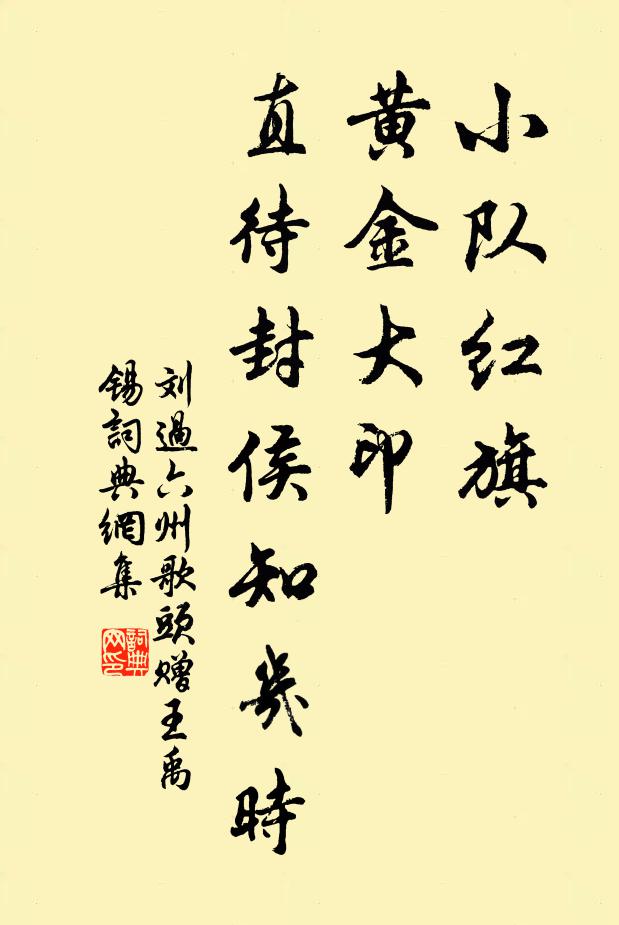 小队红旗
黄金大印
直待封侯知几時
刘過六州歌頭贈王禹
锡詞典網集
詞典网印